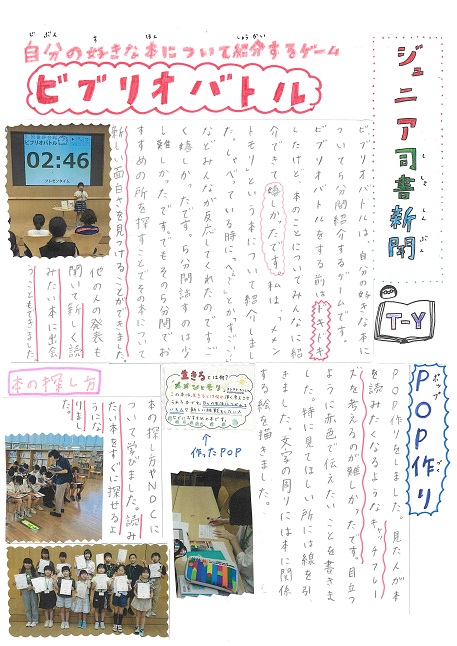 ジュニア司書新聞
ししょしんぶん
T-Y
じぶん すほん しょうかい
自分の好きな本について紹介するゲーム
ビブリオバトル
ビブリオバトルは、自分の好きな本に
ついて5分間紹介するゲームです。
ビブリオバトルをする前はドキドキ
したけど、本のことについてみんなに紹
介できて嬉しかったです。私は、「メメン
トモリ」という本について紹介しまし
た。しゃべっている時に「へ〜」とか「すごい」
などみんなが反応してくれたのですご
く嬉しかったです。5分間話すのは少
し難しかったです。でもその5分間でお
すすめの所を探すことでその本について
新しい面白さを見つけることができました。
他の人の発表も
聞いて新しく読
みたい本に出会
うこともできました。
ビブリオバトル
02:46
プレゼンタイム
POP作り
ポップ
POP作りをしました。見た人が本
を読みたくなるようなキャッチフレー
ズを考えるのが難しかったです。目立つ
ように赤色で伝えたいことを書きま
した。特に見てほしい所には線を引
きました。文字の周りには本に関係
する絵を描きました。
生きるとは何?
メメントモリ
↑
作ったPOP
本の探し方
本の探し方やNDCに
ついて学びました。読み
たい本をすぐに探せるよ
うにな
りまし
た。